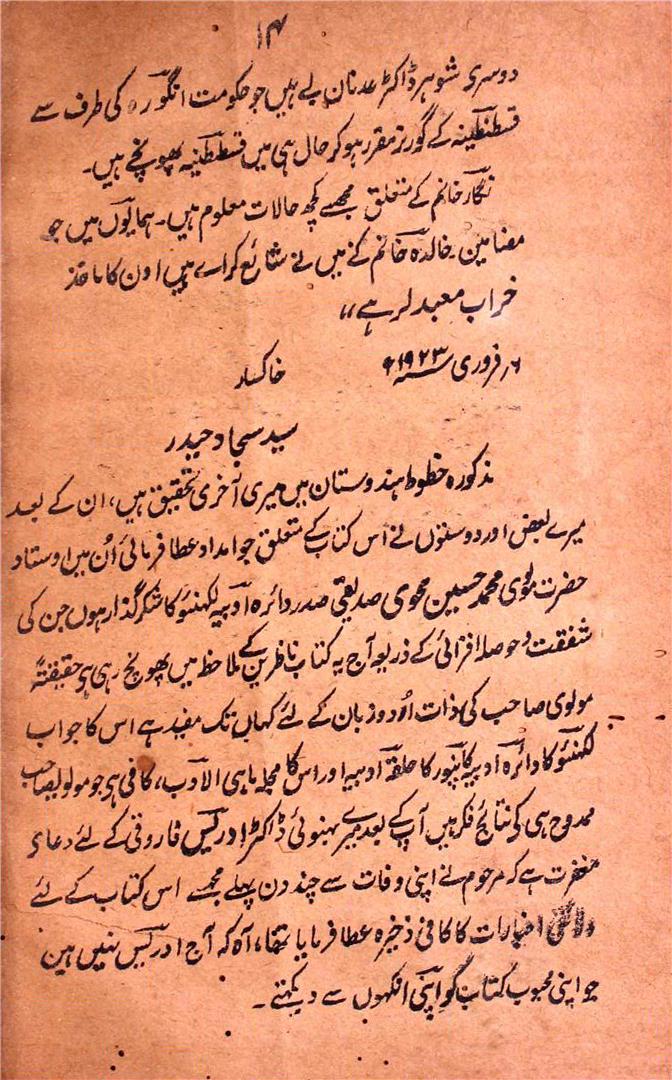 ۱۴
دوسری شوہر ڈاکٹر عدنان بے ہیں جو حکومت انگورہ کی طرف سے
قسطنطینہ کے گورنر مقرر ہو کر حال ہی میں قسطنطینہ پھونچے ہیں۔
نگار خانم کے متعلق مجھے کچھ حالات معلوم نہیں۔ ہمایوں میں جو
مضامین۔ خالدہ خانم کے میں نے شائع کرائے ہیں اون کا ماخذ
خراب معبد لر ہے،،
۶؍ فروری سنہ ۱۹۲۳ء خاکسار
سید سجاد حیدر
مذکورہ خطوط ہندوستان میں میری آخری تحقیق ہیں، ان کے بعد
میرے بعض اور دوستوں نے اس کتاب کے متعلق جو امداد عطا فرمائی اُن میں اوستاد
حضرت مولوی محمد حسین محوی صدیقی صدر دائرہ ادبیہ لکھنئو کا شکر گذار ہوں جن کی
شفقت و حوصلہ افزائی کے ذریعہ آج یہ کتاب ناظرین کے ملاحظہ میں پھونچ رہی ہی حقیقتہً
مولوی صاحب کی ذات اُردو زبان کے لئے کہاں تک مفید ہے اس کا جواب
لکھنئو کا دائرہ ادبیہ کانپور کا حلقہ ادبیہ اور اس کا مجلہ ماہی الادب، کافی ہی جو مولویصاحب
ممدوح ہی کی نتائج فکر ہیں آپ کے بعد میرے بہنوئی ڈاکٹر ادریس فاروقی کے لئے دعای
مغفرت ہے کہ مرحوم نے اپنی وفات سے چند دن پہلے مجھے اس کتاب کے لئے
ولائتی اخبارات کا کافی ذخیرہ عطا فرمایا تھا، آہ کہ آج ادریس نہیں ہین
جو اپنی محبوب کتاب کو اپنی انکھوں سے دیکہتے۔